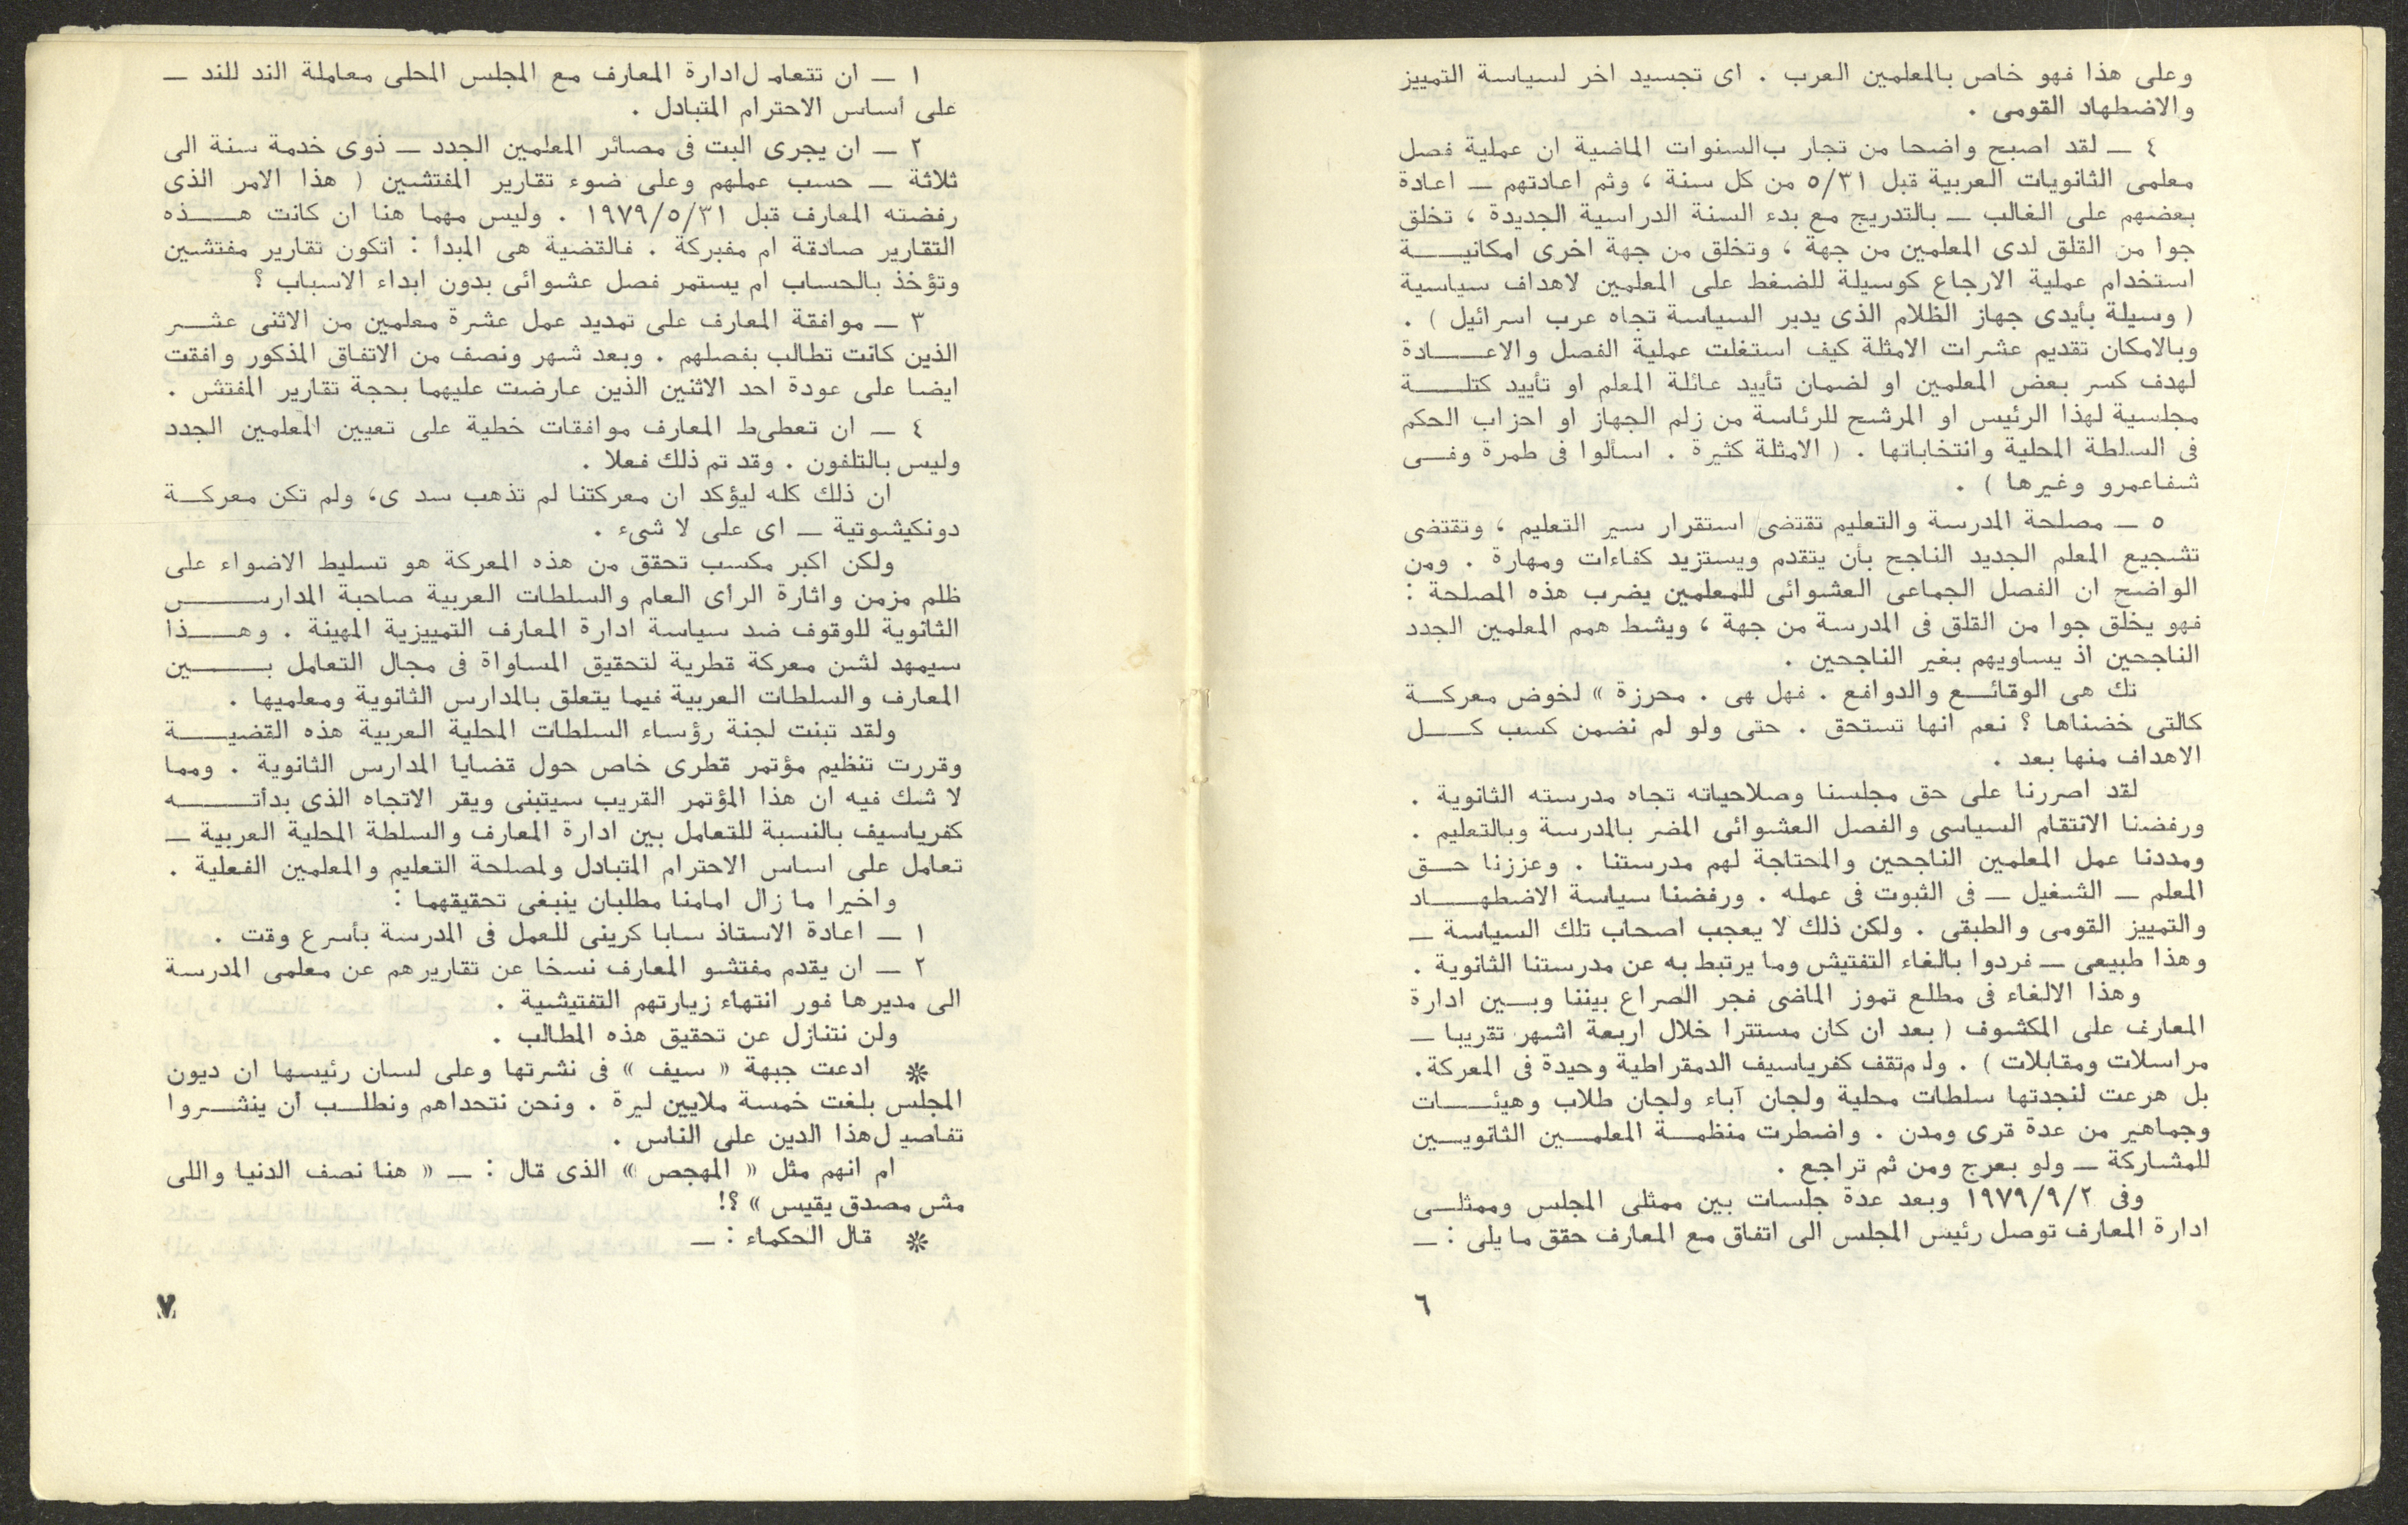 وعلى هذا فهو خاص بالمعلمين العرب . اى تجسيد اخر لسياسة التمييز
والاضطهاد القومى .
٤ ــ لقد اصبح واضحا من تجار بالسنوات الماضية ان عملية فصل
معلمى الثانويات العربية قبل ٥/٣١ من كل سنة ، وثم اعادتهم ــ اعادة
بعضهم على الغالب ــ بالتدريج مع بدء السنة الدراسية الجديدة ، تخلق
جوا من القلق لدى المعلمين من جهة ، وتخلق من جهة اخرى امكانيـــة
استخدام عملية الارجاع كوسيلة للضغط على المعلمين لاهداف سياسية
( وسيلة بأيدى جهاز الظلام الذى يدير السياسة تجاه عرب اسرائيل ) .
وبالامكان تقديم عشرات الامثلة كيف استغلت عملية الفصل والاعـــادة
لهدف كسر بعض المعلمين او لضمان تأييد عائلة المعلم او تأييد كتلـــة
مجلسية لهذا الرئيس او المرشح للرئاسة من زلم الجهاز او احزاب الحكم
فى السلطة المحلية وانتخاباتها . ( الامثلة كثيرة . اسألوا فى طمرة وفــى
شفاعمرو وغيرها ) .
٥ ــ مصلحة المدرسة والتعليم تقتضى استقرار سير التعليم ، وتقتضى
تشجيع المعلم الجديد الناجح بأن يتقدم ويستزيد كفاءات ومهارة . ومن
الواضح ان الفصل الجماعى العشوائى للمعلمين يضرب هذه المصلحة :
فهو يخلق جوا من القلق فى المدرسة من جهة ، ويشط همم المعلمين الجدد
الناجحين اذ يساويهم بغير الناجحين .
تك هى الوقائــع والدوافع . فهل هى . محرزة » لخوض معركــة
كالتى خضناها ؟ نعم انها تستحق . حتى ولو لم نضمن كسب كـــل
الاهداف منها بعد .
لقد اصررنا على حق مجلسنا وصلاحياته تجاه مدرسته الثانوية .
ورفضنا الانتقام السياسى والفصل العشوائى المضر بالمدرسة وبالتعليم .
ومددنا عمل المعلمين الناجحين والمحتاجة لهم مدرستنا . وعززنا حــق
المعلم ــ الشغيل ــ فى الثبوت فى عمله . ورفضنا سياسة الاضطهـــاد
والتمييز القومى والطبقى . ولكن ذلك لا يعجب اصحاب تلك السياسة ــ
وهذا طبيعى ــ فردوا بالغاء التفتيش وما يرتبط به عن مدرستنا الثانوية .
وهذا الالغاء فى مطلع تموز الماضى فجر الصراع بيننا وبــين ادارة
المعارف على المكشوف ( بعد ان كان مستترا خلال اربعة اشهر تقريبا ــ
مراسلات ومقابلات ) . ولم تقف كفرياسيف الدمقراطية وحيدة فى المعركة.
بل هرعت لنجدتها سلطات محلية ولجان آباء ولجان طلاب وهيئـــات
وجماهير من عدة قرى ومدن . واضطرت منظمــة المعلمــين الثانويــين
للمشاركة ــ ولو بعرج ومن ثم تراجع .
وفى ١٩٧٩/٩/٢ وبعد عدة جلسات بين ممثلى المجلس وممثلــى
ادارة المعارف توصل رئيس المجلس الى اتفاق مع المعارف حقق ما يلى : ــ
٦
١ ــ ان تتعامـ ل ادارة المعارف مع المجلس المحلى معاملة الند للند ــ
على أساس الاحترام المتبادل .
٢ ــ ان يجرى البت فى مصائر المعلمين الجدد ــ ذوى خدمة سنة الى
ثلاثة ــ حسب عملهم وعلى ضوء تقارير المفتشين ( هذا الامر الذى
رفضته المعارف قبل ١٩٧٩/٥/٣١ . وليس مهما هنا ان كانت هـــذه
التقارير صادقة ام مفبركة . فالقضية هى المبدأ : اتكون تقارير مفتشين
وتؤخذ بالحساب ام يستمر فصل عشوائى بدون ابداء الاسباب ؟
٣ ــ موافقة المعارف على تمديد عمل عشرة معلمين من الاثنى عشــر
الذين كانت تطالب بفصلهم . وبعد شهر ونصف من الاتفاق المذكور وافقت
ايضا على عودة احد الاثنين الذين عارضت عليهما بحجة تقارير المفتش .
٤ ــ ان تعطىط المعارف موافقات خطية على تعيين المعلمين الجدد
وليس بالتلفون . وقد تم ذلك فعلا .
ان ذلك كله ليؤكد ان معركتنا لم تذهب سد ى، ولم تكن معركــة
دونكيشوتية ــ اى على لا شىء .
ولكن اكبر مكسب تحقق من هذه المعركة هو تسليط الاضواء على
ظلم مزمن واثارة الرأى العام والسلطات العربية صاحبة المدارســـس
الثانوية للوقوف ضد سياسة ادارة المعارف التمييزية المهينة . وهـــذا
سيمهد لشن معركة قطرية لتحقيق المساواة فى مجال التعامل بـــين
المعارف والسلطات العربية فيما يتعلق بالمدارس الثانوية ومعلميها .
ولقد تبنت لجنة رؤساء السلطات المحلية العربية هذه القضيـــة
وقررت تنظيم مؤتمر قطرى خاص حول قضايا المدارس الثانوية . ومما
لا شك فيه ان هذا المؤتمر القريب سيتبنى ويقر الاتجاه الذى بدأتـــه
كفرياسيف بالنسبة للتعامل بين ادارة المعارف والسلطة المحلية العربية ــ
تعامل على اساس الاحترام المتبادل ولمصلحة التعليم والمعلمين الفعلية .
واخيرا ما زال امامنا مطلبان ينبغى تحقيقهما :
١ ــ اعادة الاستاذ سابا كرينى للعمل فى المدرسة بأسرع وقت .
٢ ــ ان يقدم مفتشو المعارف نسخا عن تقاريرهم عن معلمى المدرسة
الى مديرها فور انتهاء زيارتهم التفتيشية .
ولن نتنازل عن تحقيق هذه المطالب .
* ادعت جبهة « سيف » فى نشرتها وعلى لسان رئيسها ان ديون
المجلس بلغت خمسة ملايين ليرة . ونحن نتحداهم ونطلــب أن ينشــروا
تفاصيـ ل هذا الدين على الناس .
ام انهم مثل « المهجص » الذى قال : ــ « هنا نصف الدنيا واللى
مش مصدق يقيس » ؟!
* قال الحكماء : ــ
٧